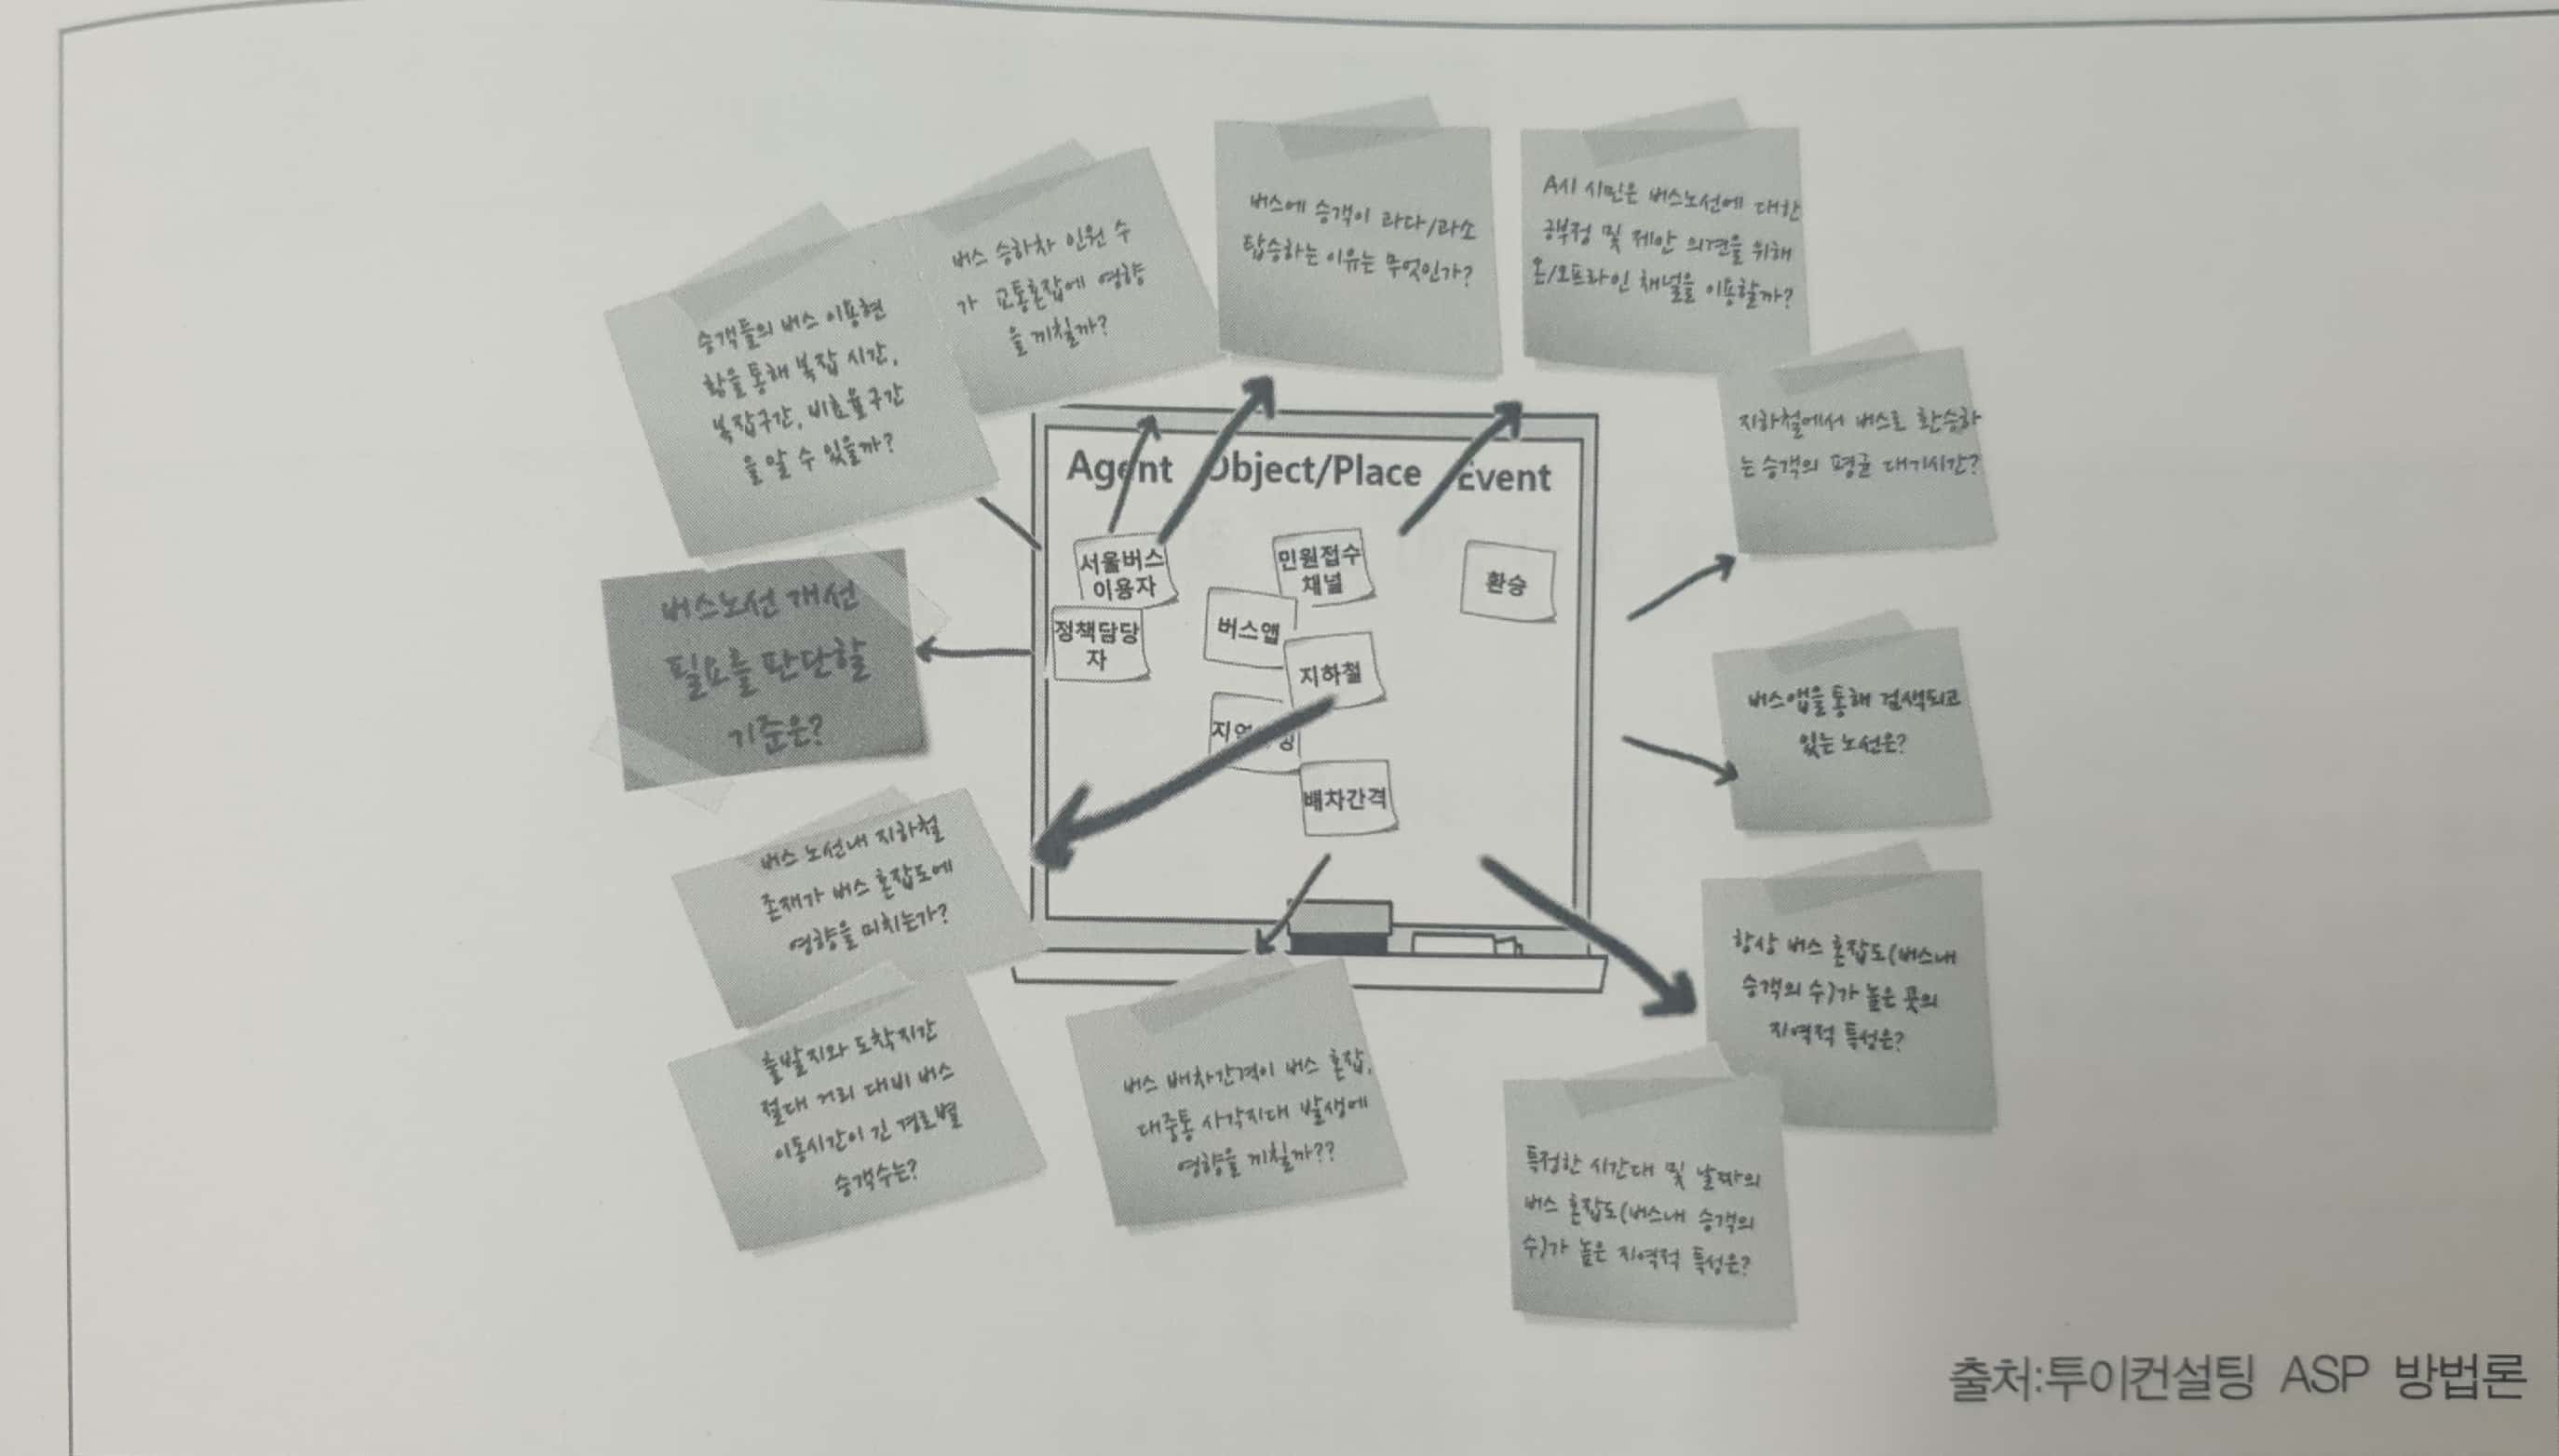 승객들의 버스 이용현
황을 통해 복잡 시간,
복잡구간, 비효율구간
을 알 수 있을까?
버스 승하차 인원 수
가 교통혼잡에 영향
을 끼칠까?
버스에 승객이 과다/과소
탑승하는 이유는 무엇인가?
A시 시민은 버스노선에 대한
긍부정 및 제안 의견을 위해
온/오프라인 채널을 이용할까?
지하철에서 버스로 환승하
는 승객의 평균 대기시간?
버스노선 개선
필요를 판단할
기준은?
Agent Object/Place Event
서울버스
이용자
정책담당
자
민원접수
채널
버스앱
지하철
배차간격
환승
버스앱을 통해 검색되고
있는 노선은?
버스 노선내 지하철
존재가 버스 혼잡도에
영향을 미치는가?
항상 버스 혼잡도(버스내
승객의 수)가 높은 곳의
지역적 특성은?
출발지와 도착지간
절대 거리 대비 버스
이동시간이 긴 경로별
승객수는?
버스 배차간격이 버스 혼잡,
대중통 사각지대 발생에
영향을 끼칠까??
특정한 시간대 및 날짜의
버스 혼잡도(버스내 승객의
수)가 높은 지역적 특성은?
출처:투이컨설팅 ASP 방법론